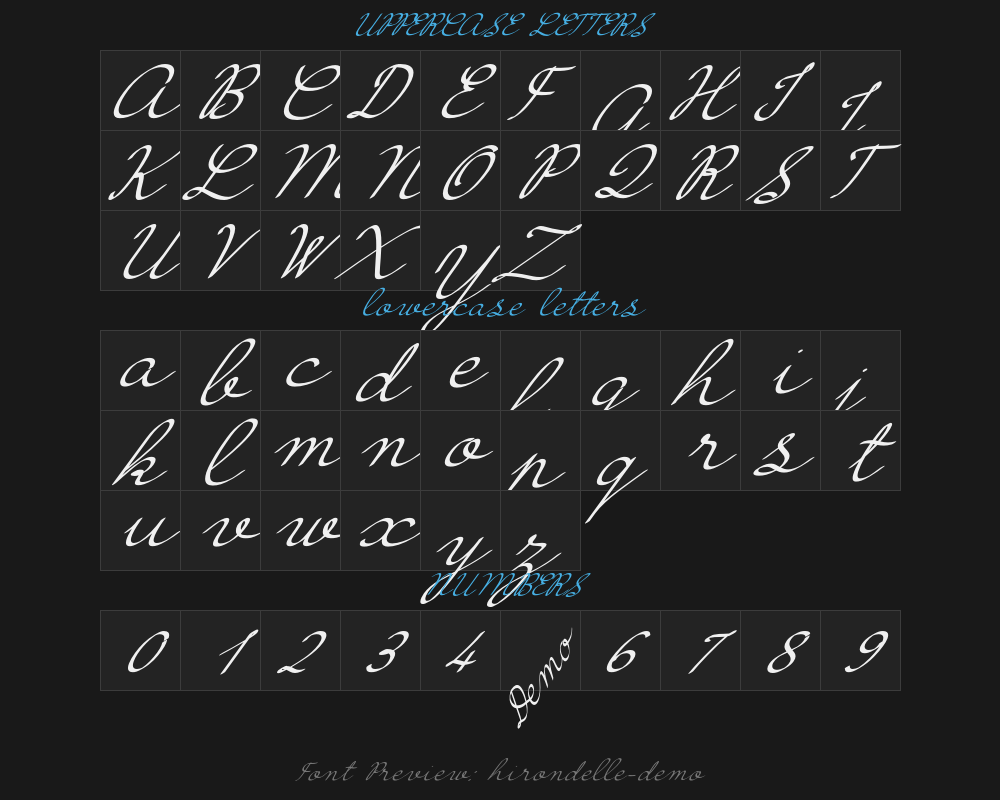 UPPERCASE LETTERS
A B C D E F G H I J
K L M N O P Q R S T
U V W X Y Z
lowercase letters
a b c d e f g h i j
k l m n o p q r s t
u v w x y z
NUMBERS
0 1 2 3 4 Demo 6 7 8 9
Font Preview: hirondelle-demo